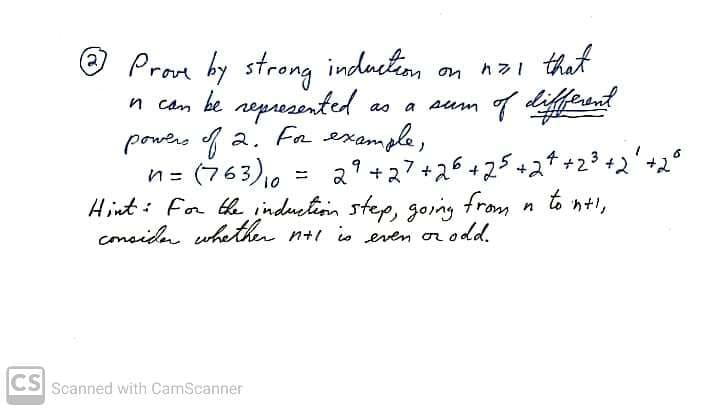 ② Prove by strong induction on n ⩾ 1 that
n can be represented as a sum of different
powers of 2. For example,
n = (763)₁₀ = 2⁹ + 2⁷ + 2⁶ + 2⁵ + 2⁴ + 2³ + 2¹ + 2⁰
Hint: For the induction step, going from n to n+1,
consider whether n+1 is even or odd.
CS Scanned with CamScanner